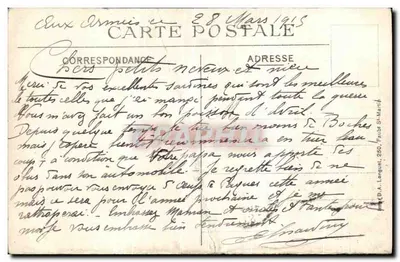 Aux Armées ce 28 Mars 1915
CARTE POSTALE
CORRESPONDANCE
ADRESSE
Chers petits neveux et nièce
Merci de vos excellentes sardines qui sont les meilleures
de toutes celles que j'ai mangé pendant toute la guerre
Vous m'avez fait un bon poisson d'Avril.
Depuis quelque moins de Boches
mais j'espère bientôt en tuer beau
coup à condition que votre papa nous apporte des
dans son automobile. Je regrette bien de ne
pas pouvoir vous envoyer d'œufs de Pâques cette année
mais ce sera pour l'année prochaine et je me
rattraperai. Embrassez Maman et tantes pour
moi je vous embrasse bien tendrement